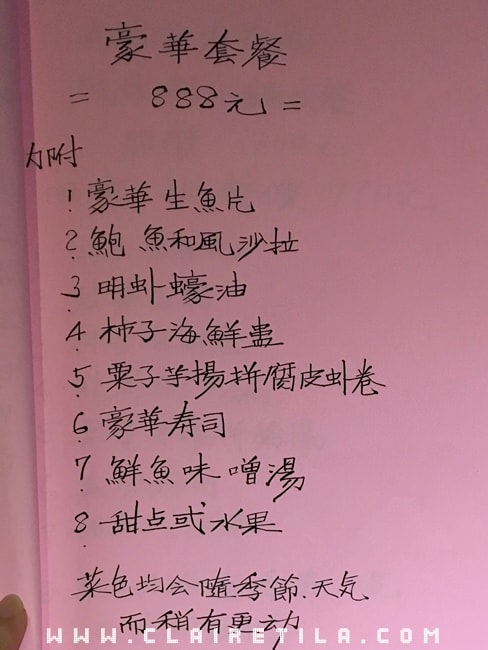 豪華套餐
= 888元 =
加附
1. 豪華生魚片
2. 鮑魚和風沙拉
3. 明虾蠔油
4. 柿子海鮮盅
5. 粟子芋揚拼腐皮虾卷
6. 豪華寿司
7. 鮮魚味噌湯
8. 甜点或水果
菜色均会隨季節.天気
而稍有更动
WWW.CLAIRETILA.COM